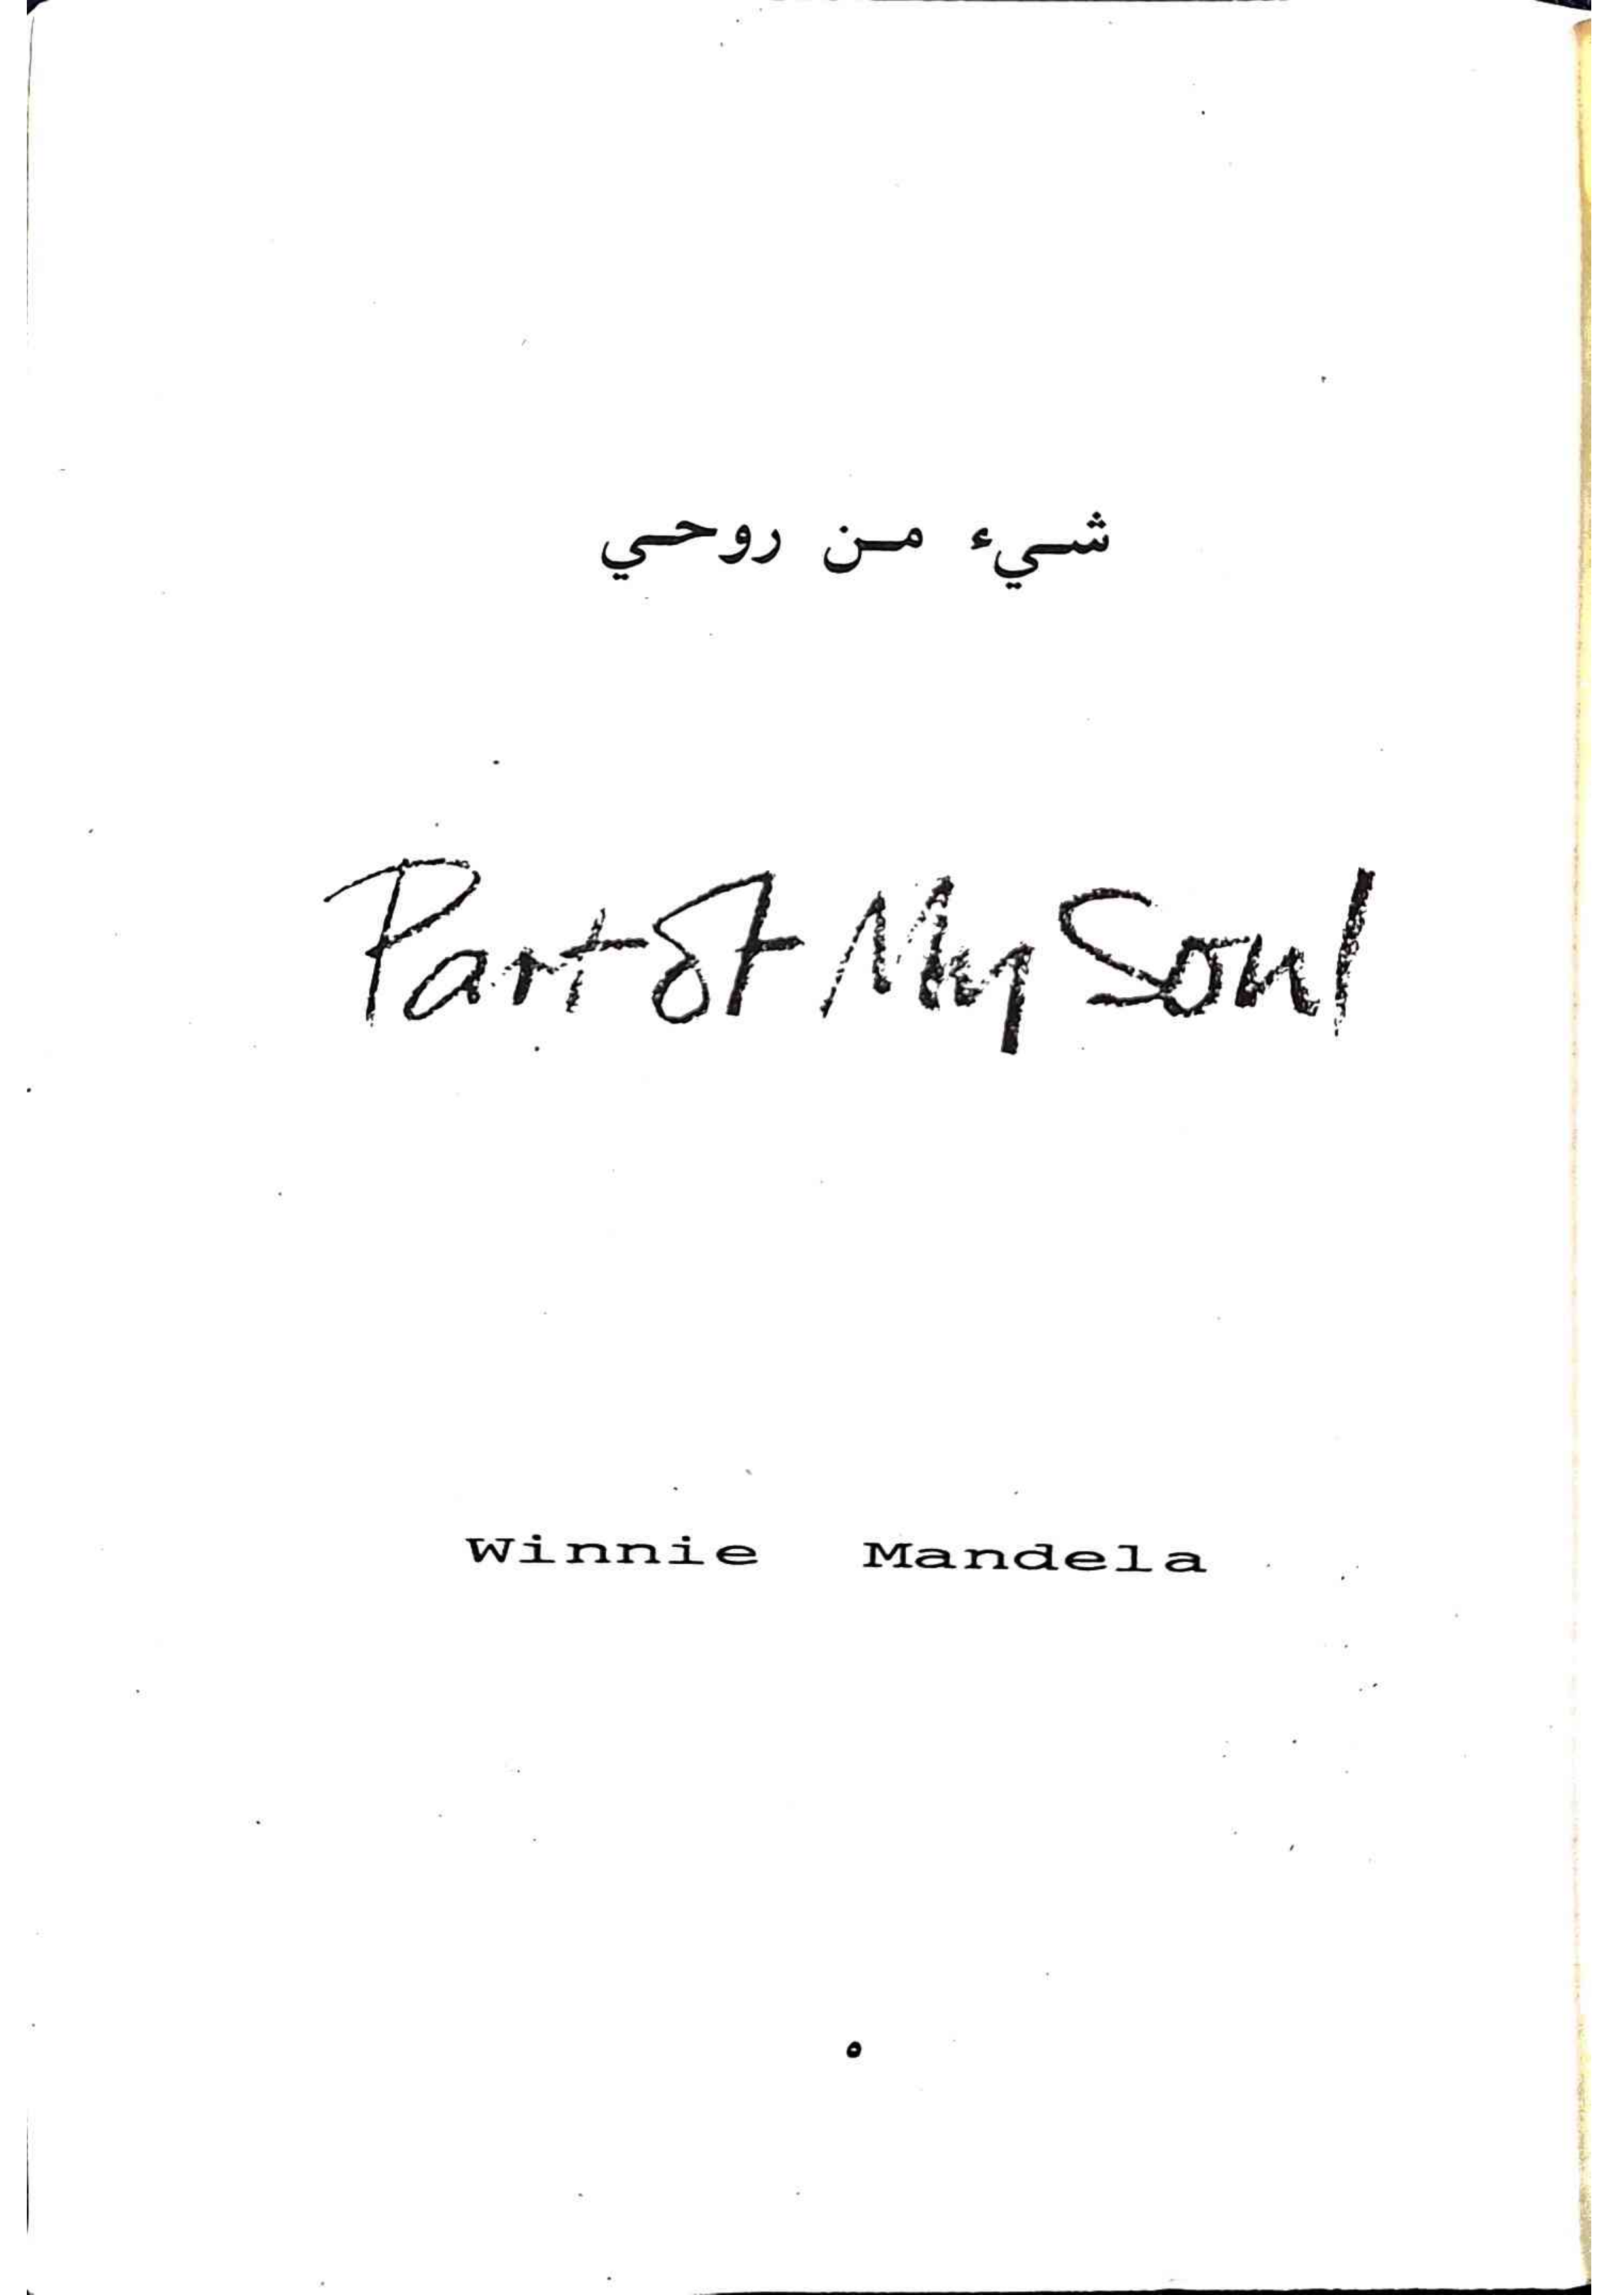 شيء من روحي
Part Of My Soul
Winnie Mandela
٥